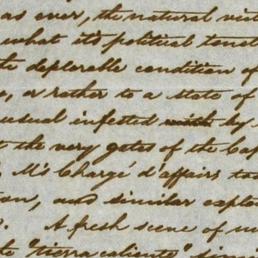 as ever, the natural vict
what its political
the deplorable condition of
or rather to a state of
usual infested with by
at the very gates of the Cap
M's Chargé d'affairs
and similar explo
A fresh scene of
"tierra caliente"